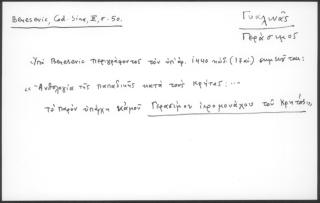 Benesevic, Cod. Sina, III, σ. 50.
Γυκλινᾶς
Γεράσιμος
Ὑπὸ Benesevic περιγράφοντος τὸν ὑπ' ἀρ. 1440 κώδ. (17 αἰ) σημειοῦται:
"Ἀνθολογία τῆς παπαδικῆς κατὰ τοὺς Κρῆτας: ...
τὸ παρὸν ὑπάρχει κἀμοῦ Γερασίμου ἱερομονάχου τοῦ Κρητὸς